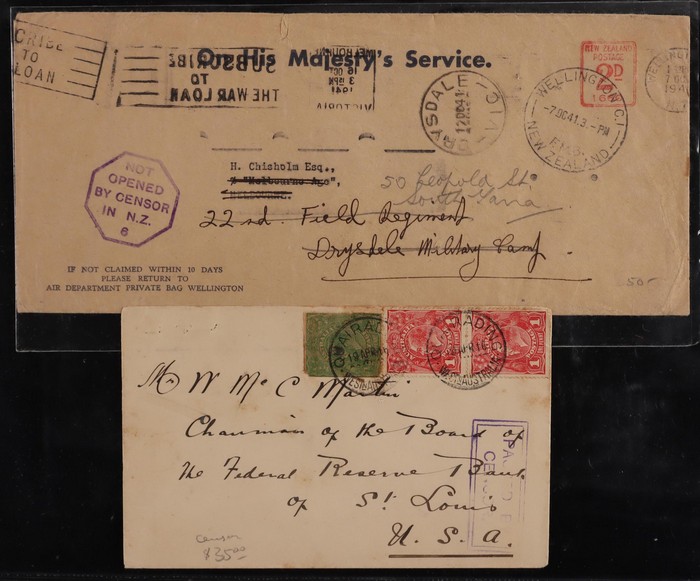 CRIBE
TO
LOAN
On His Majesty's Service.
SUBSCRIBE
TO
THE WAR LOAN
3 PM
16 OC
1941
VICTORIA
DRYSDALE
12 DC 41
VIC
NEW ZEALAND
POSTAGE
WELLINGTON C.1
-7 DC 41.3 - PM
NEW ZEALAND
WELLINGTON
NOT
OPENED
BY CENSOR
IN N.Z.
6
H. Chisholm Esq.,
"Melbourne Age",
MELBOURNE.
50 Leopold St.
South Yarra
22nd. Field Regiment
Drysdale Military Camp
IF NOT CLAIMED WITHIN 10 DAYS
PLEASE RETURN TO
AIR DEPARTMENT PRIVATE BAG WELLINGTON
50-
QUAIRADING
WEST AUSTRALIA
QUAIRADING
WEST AUSTRALIA
Mr W Mc C Martin
Chairman of the Board of
the Federal Reserve Bank
of St. Louis
U.S.A.
PASSED
CENSOR
censor
$35.00